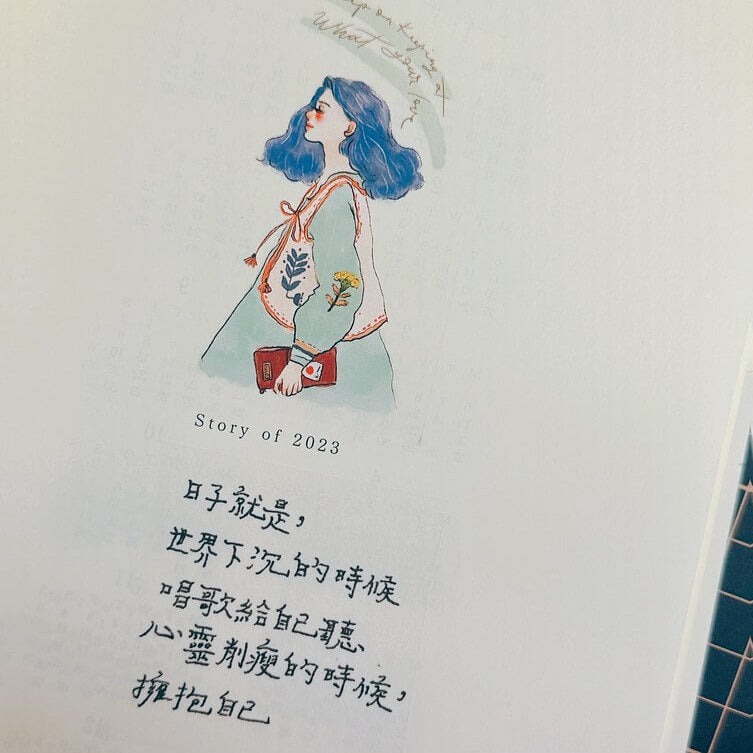 on keeping at
What your love
Story of 2023
日子就是，
世界下沉的時候
唱歌給自己聽、
心靈削瘦的時候，
擁抱自己